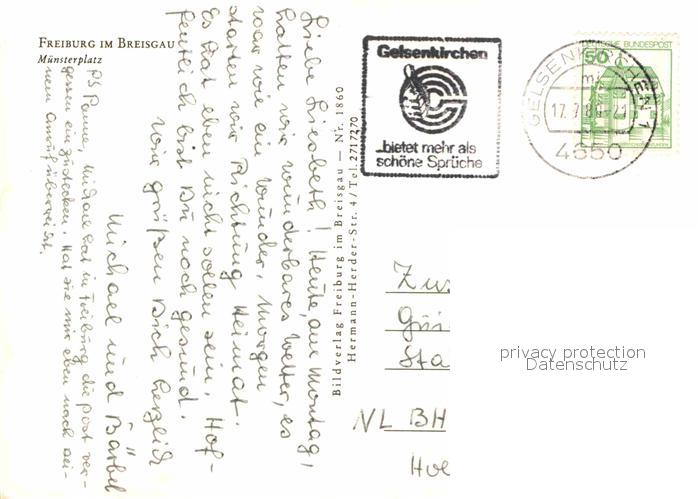 FREIBURG IM BREISGAU
Münsterplatz
Liebe Liesbeth! Heute, am Montag,
hatten wir wunderbares Wetter, es
war wie ein Wunder. Morgen
starten wir Richtung Heimat.
Es hat eben nicht sollen sein. Hof-
fentlich bist Du noch gesund.
Wir grüßen Dich herzlich
Michael und Bärbel
PS Panne, Michael hat in Freiburg die Post ver-
gessen einzustecken. Hat sie mir eben nach sei-
nem Anruf überreicht.
Bildverlag Freiburg im Breisgau — Nr. 1860
Hermann-Herder-Str. 4 / Tel. 2717270
Gelsenkirchen
...bietet mehr als
schöne Sprüche
GELSENKIRCHEN 1
mk
4650
DEUTSCHE BUNDESPOST
50
Zu
Gü
Sta
NL BH
Hoe
privacy protection
Datenschutz